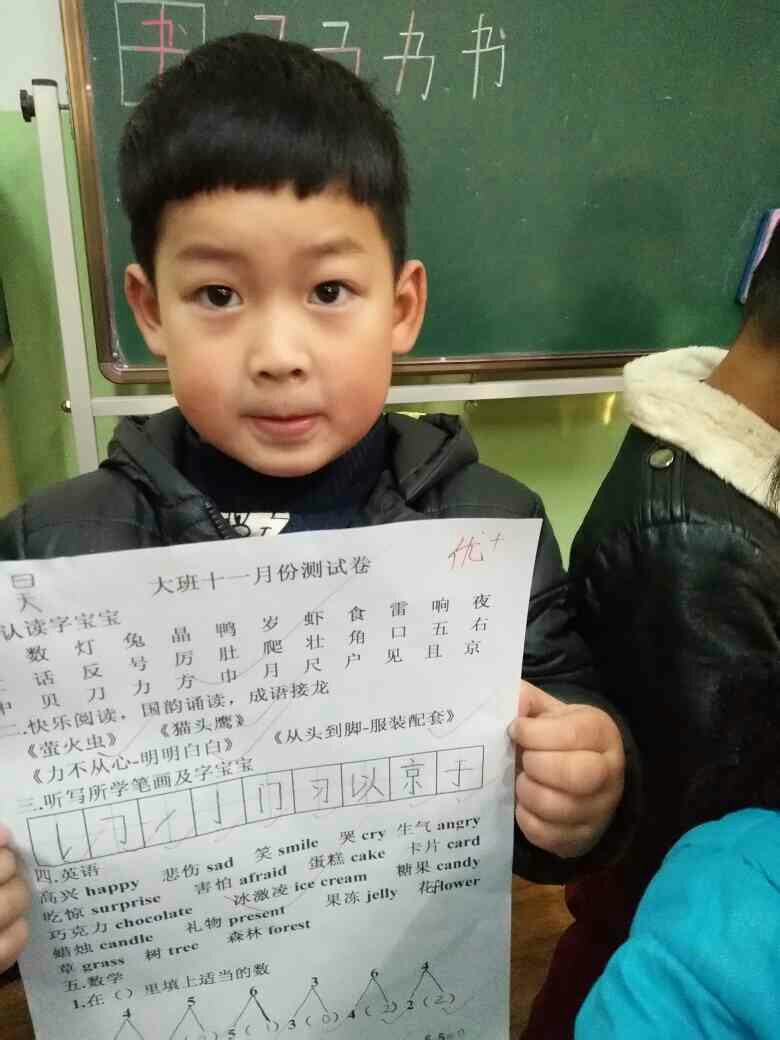 书 书
优+
昊天
大班十一月份测试卷
认读字宝宝
数 灯 兔 晶 鸭 岁 虾 食 雷 响 夜
话 反 号 厉 肚 爬 壮 角 口 五 右
中 贝 刀 力 方 巾 月 尺 户 见 且 京
二.快乐阅读，国韵诵读，成语接龙
《萤火虫》 《猫头鹰》
《力不从心-明明白白》 《从头到脚-服装配套》
三.听写所学笔画及字宝宝
门 习 以 京 于
四.英语
高兴 happy 悲伤 sad 笑 smile 哭 cry 生气 angry
吃惊 surprise 害怕 afraid 蛋糕 cake 卡片 card
巧克力 chocolate 冰激凌 ice cream 糖果 candy
蜡烛 candle 礼物 present 果冻 jelly 花 flower
草 grass 树 tree 森林 forest
五.数学
1.在（）里填上适当的数
4 5 6 3 6 4
5 (1) 3 (0) 4 (2) 2 (2)